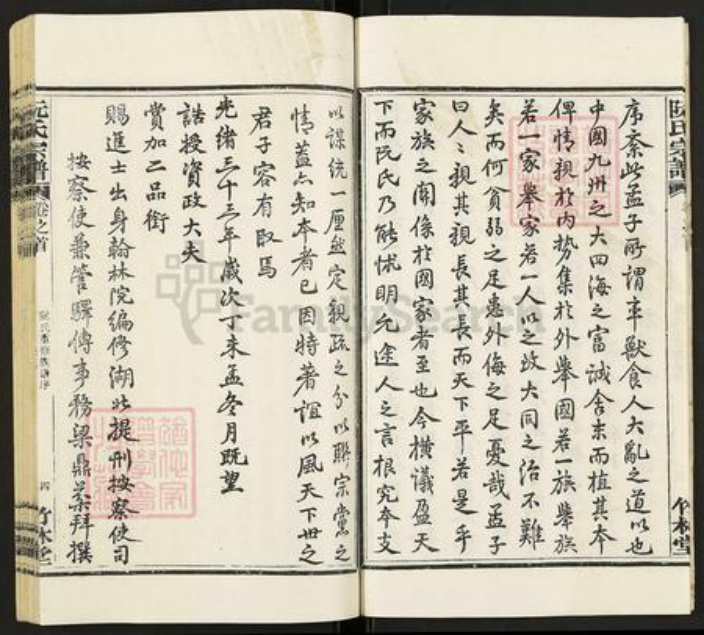 阮氏宗譜
竹林堂
序紊此孟子所謂率獸食人大亂之道以也
中國九州之大四海之富誠舍末而植其本
俾情親於內勢集於外舉國若一族舉族
若一家舉家若一人以之致大同之治不難
矣而何貧弱之足患外侮之足憂哉孟子
曰人〻親其親長其長而天下平若是乎
家族之關係於國家者至也今橫議盈天
下而阮氏乃能怵明允途人之言根究本支
以謀統一厘然定親疏之分以聯宗黨之
情蓋亦知本者已因特著誼以風天下世之
君子容有取焉
光緒三十三年歲次丁未孟冬月既望
誥授資政大夫
賞加二品銜
賜進士出身翰林院編修湖北提刑按察使司
按察使兼管驛傳事務梁鼎芬拜撰
阮氏宗譜
卷之首
阮氏重修族譜序
四
竹林堂
FamilySearch